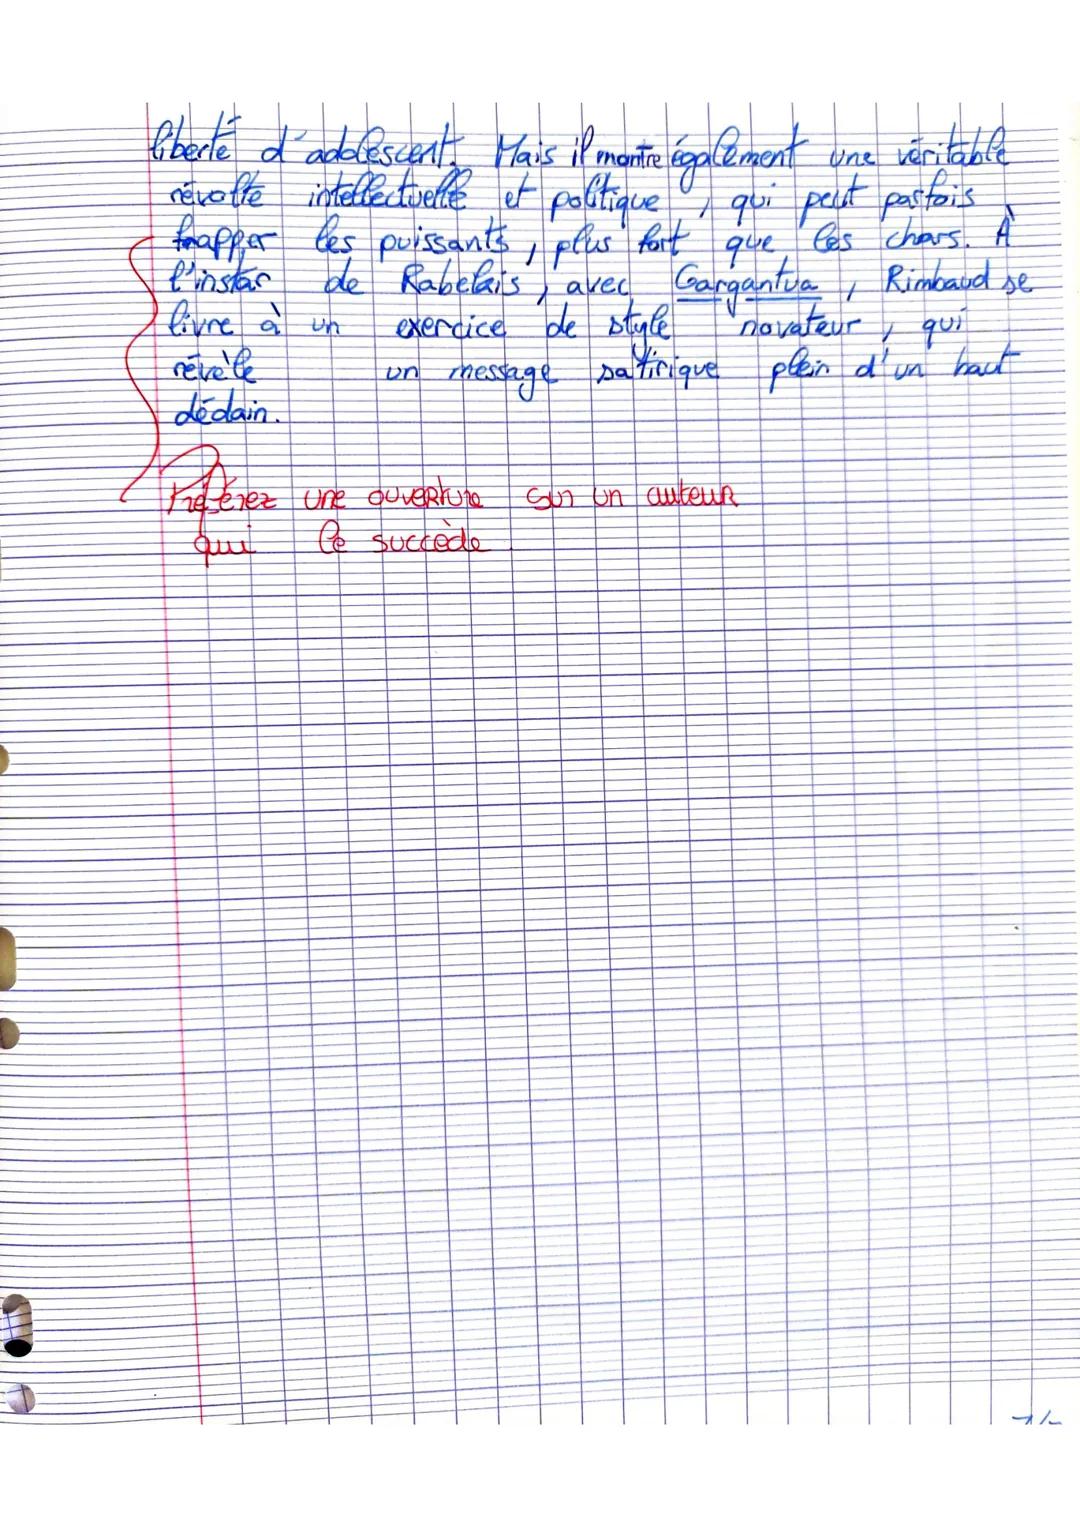 liberté d'adolescent. Mais il montre également une véritable
révolte intellectuelle et politique, qui peut parfois
frapper les puissants, plus fort que les chars. À
l'instar de Rabelais, avec Gargantua, Rimbaud se
livre à un exercice de style novateur, qui
révèle un message satirique plein d'un haut
dédain.
Préférez une ouverture sur un auteur
qui le succède